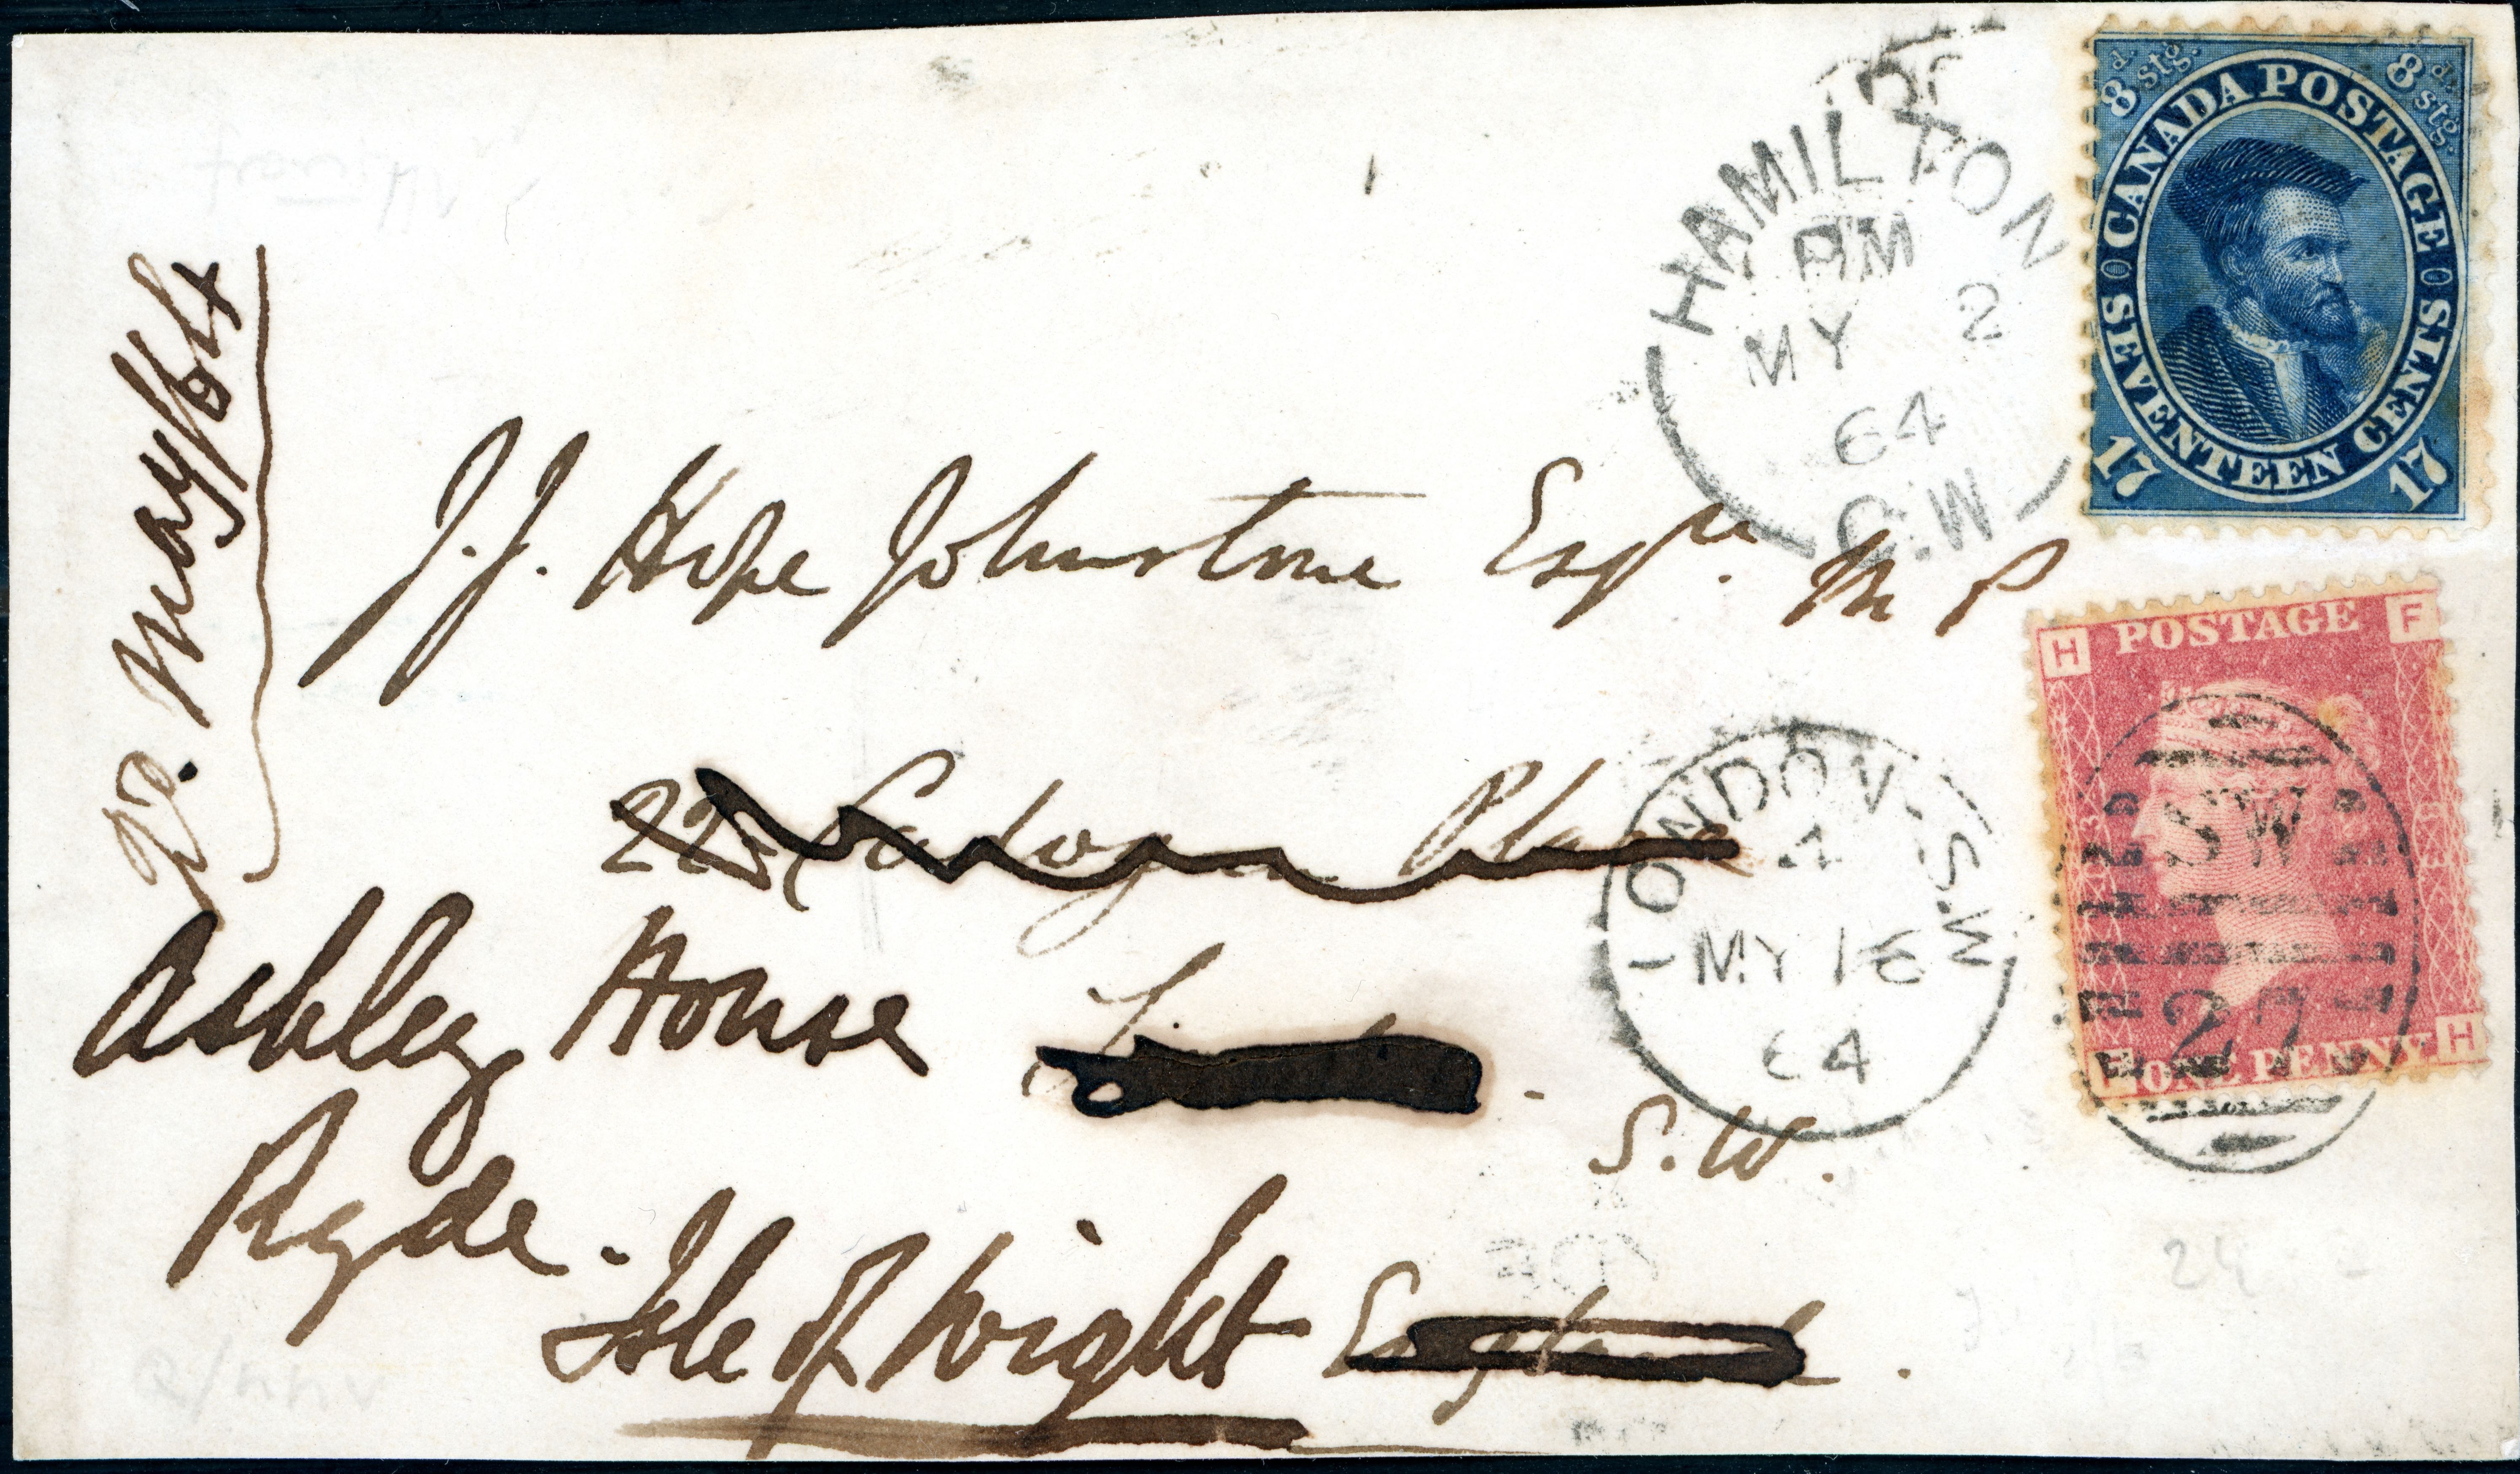 8d. stg. 8d. stg.
CANADA POSTAGE
SEVENTEEN CENTS
17 17
HAMILTON
PM
MY 2
64
C.W
May /64
J.J. Hope Johnstone Esqre. M P
H POSTAGE F
22 Cadogan Place
LONDON · S.W
4
MY 16
64
SW
27
F ONE PENNY H
Ashley House
S.W.
Ryde.
Isle of Wight England.
24